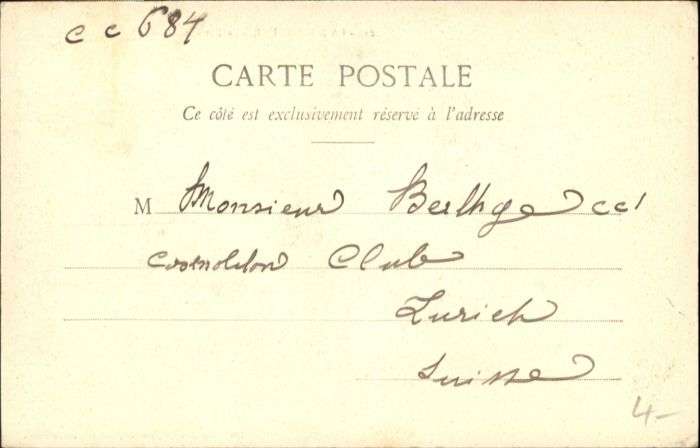 c c 684
CARTE POSTALE
Ce côté est exclusivement réservé à l'adresse
M Monsieur Berthge cc1
Cosmoliton Club
Zurich
Suisse
4-